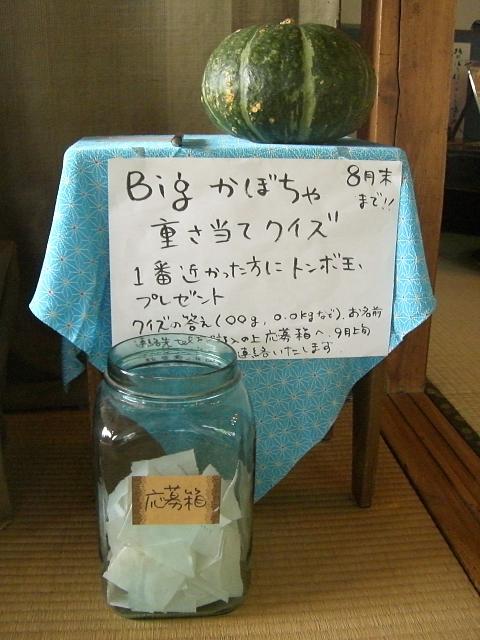 Big かぼちゃ
8月末
まで!!
重さ当てクイズ
1番近かった方に トンボ玉、
プレゼント
クイズの答え(00g, 0.0kgなど)、お名前
連絡先
の上 応募箱へ、9月上旬
連絡いたします
応募箱